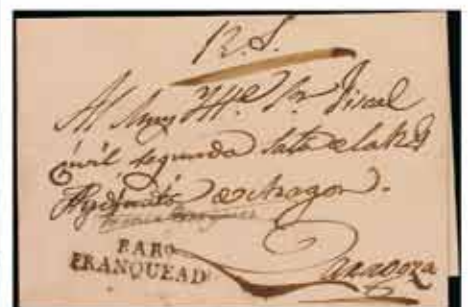 R. S.
Al Muy Ille Sr Fiscal
civil segunda Sala de la Rl
de Aragon.
FARO
FRANQUEAD
Zaragoza